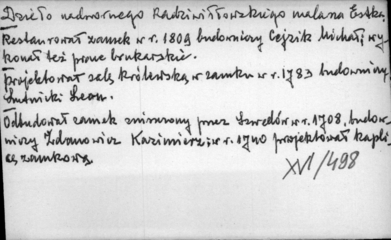 Dzieło nadwornego Radziwiłłowskiego malarza Estki.
Restaurował zamek w r. 1809 budowniczy Cejzik Michał, wy
konał też prace brukarskie.
Projektował salę królewską w zamku w r. 1783 budowniczy
Lutnicki Leon.
Odbudował zamek zniszczony przez Szwedów w r. 1708, budow-
niczy Żdanowicz Kazimierz; w r. 1740 projektował kapli
cę zamkową
XVI/498